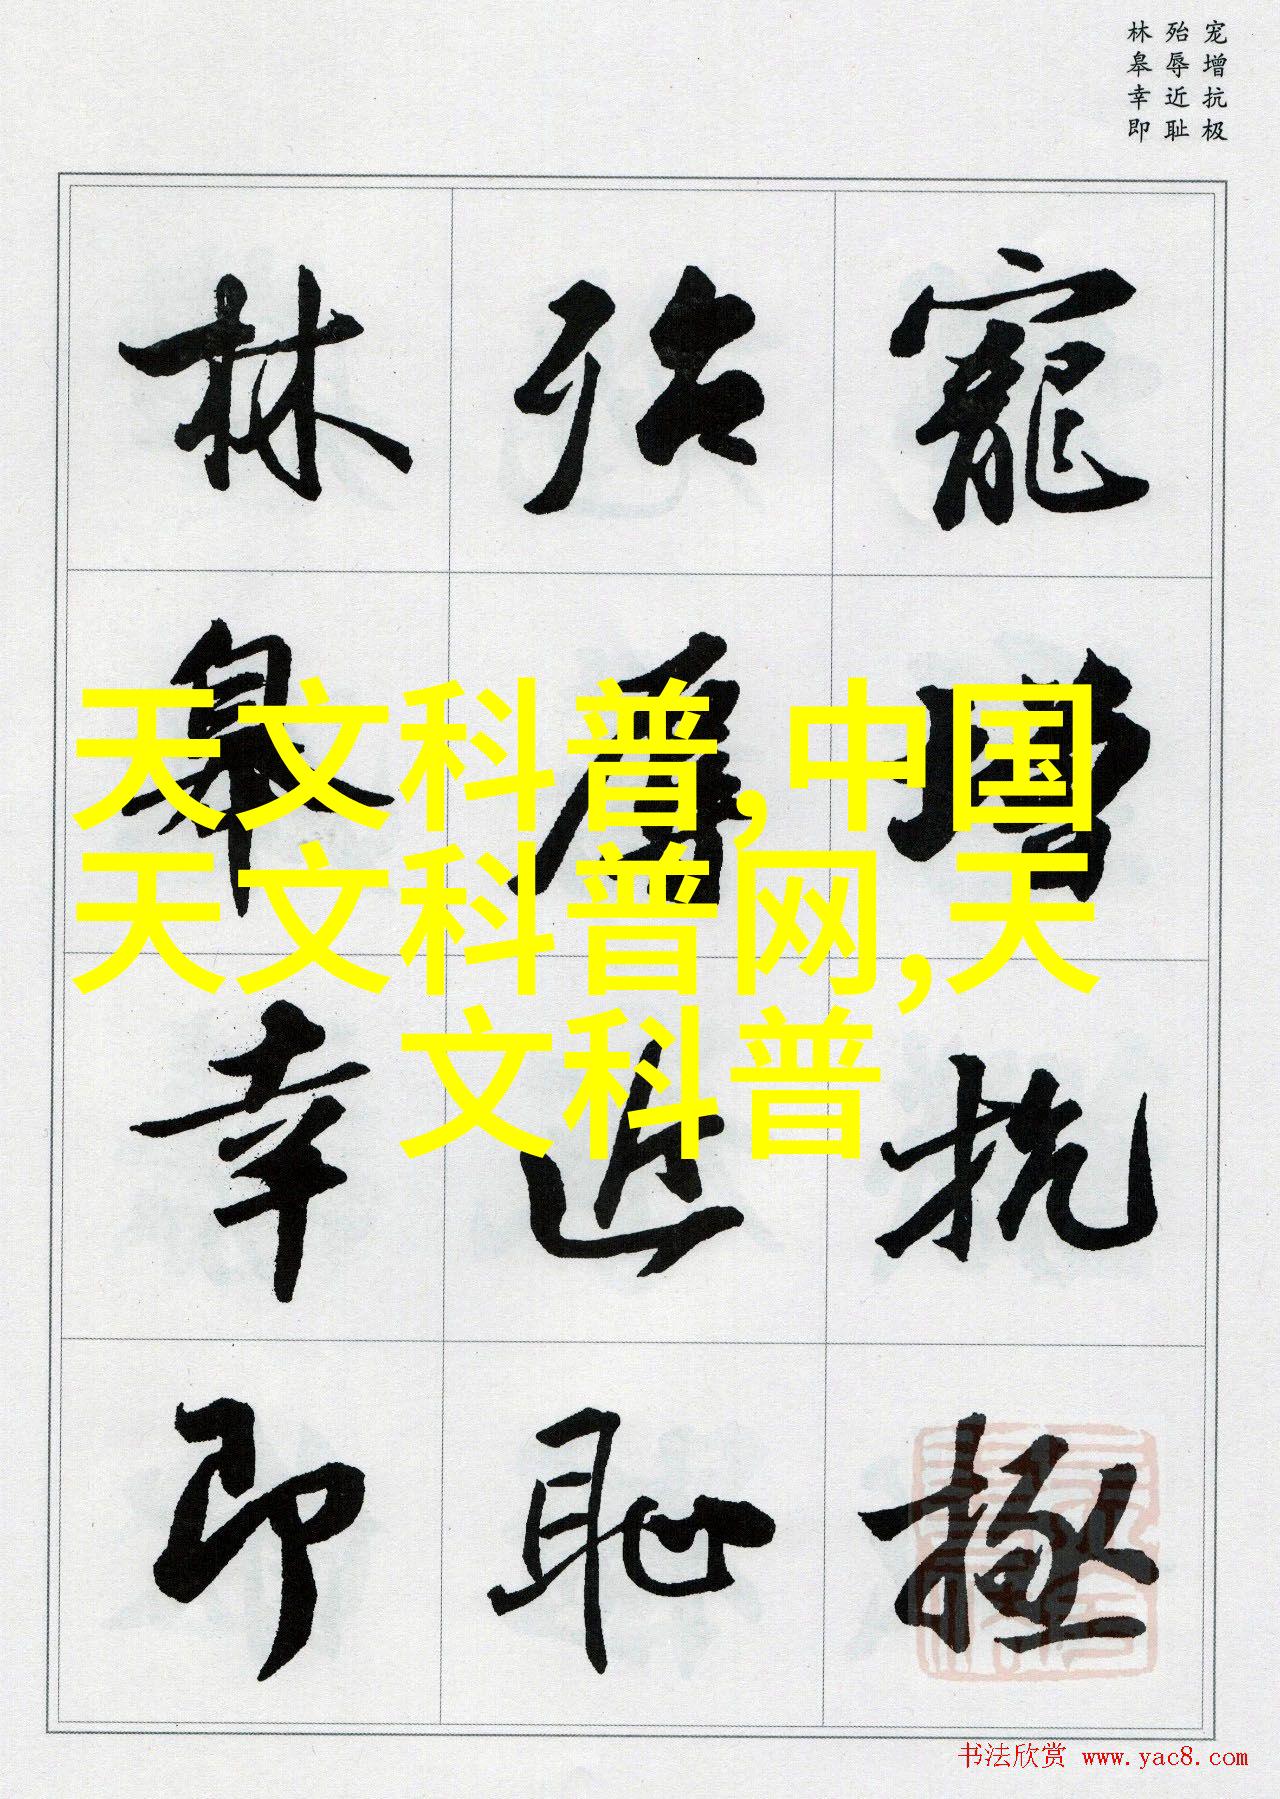 宠增抗极
殆辱近耻
林皋幸即
寵增抗極
殆辱近恥
林皋幸即
天文科普,中国
天文科普网,天
文科普
书法欣赏 www.yac8.com